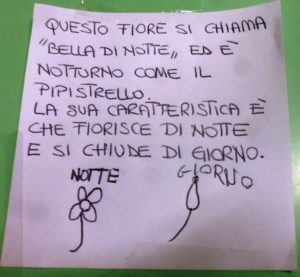 QUESTO FIORE SI CHIAMA
"BELLA DI NOTTE„ ED È
NOTTURNO COME IL
PIPISTRELLO.
LA SUA CARATTERISTICA È
CHE FIORISCE DI NOTTE
E SI CHIUDE DI GIORNO.
NOTTE GIORNO